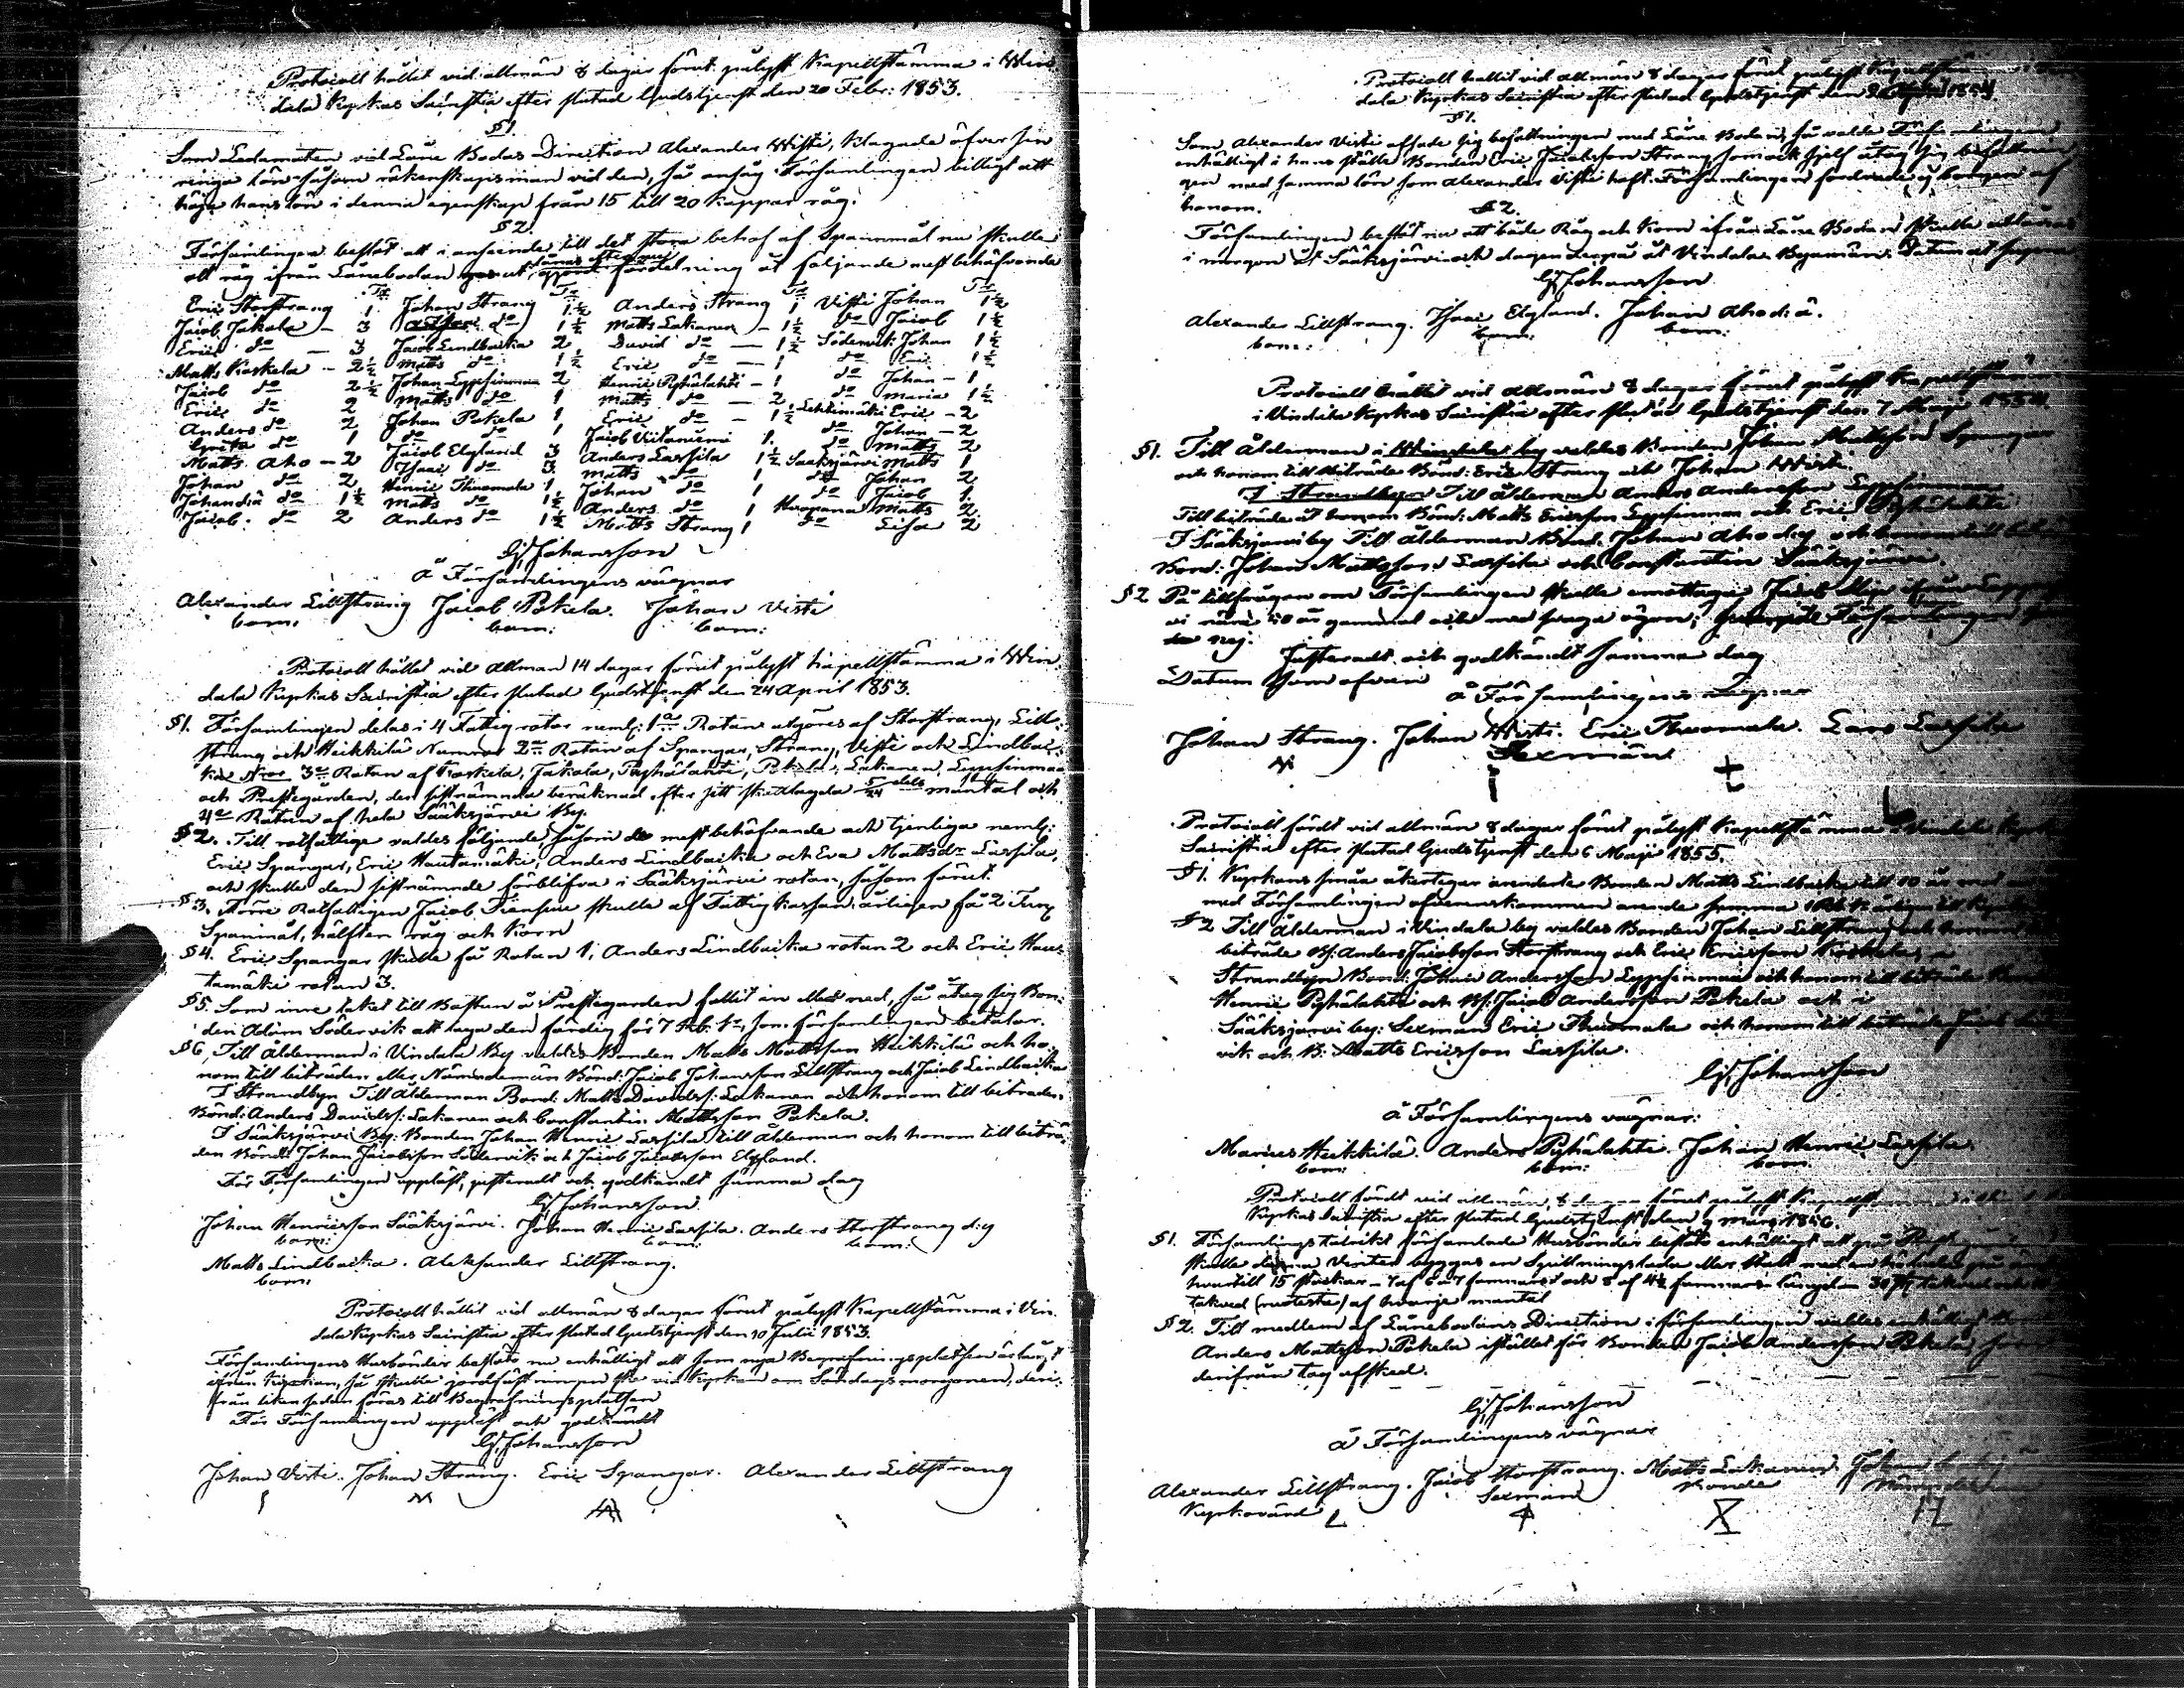 Protocoll hållet vid allmän 8 dagar förut pålyst Kapellstämma i Win-
dala Kyrkas Sacristia efter slutad Gudstjenst den 20 Febr: 1853.
§1.
Som Ledamoten vid Låne Bodas Direction Alexander Wisti, klagade öfver sin
ringa lön såsom räkenskapsman vid den, så ansåg Församlingen billigt att
höja hans lön i denna egenskap från 15 till 20 kappar råg.
§2.
Församlingen beslöt att i anseende till det stora behof af Spannmål nu skulle
all råg ifrån Lånebodan fördelning åt följande mest behöfvande
Eric Storstrang 1 Johan Strang 1½ Anders Strang 1 Visti Johan 1½
Jacob Jakola - 3 do 1½ Matts Lakanen - 1½ do Jacob 1½
Eric do — 3 Jacob Lindbacka 2 David do — 1½ Södervik Johan 1½
Matts Koskela - 2½ Matts do 1½ Eric do — 1 do Eric 1½
Jacob do 2½ Johan Leppsinmaa 2 Henric Pyhälahti - 1 do Johan - 1
Eric do 2 Matts do 1 Matts do — 2 do Maria 1½
Anders do 2 Johan Pokela 1 Eric do - 1½ Lehtimäki Eric - 2
Greta do 1 do do 1 Jacob Viitaniemi 1. do Johan - 2
Matts Aho - 2 Jacob Elgland 3 Anders Lassila 1½ do Matts 2
Johan do 2 Isaac do 3 Matts do 1 Sääksjärvi Matts 1
Johan d.ä do 1½ Henric Thuomala 1 Johan do 1 do Johan 2
Jacob do 2 Matts do 1½ Anders do 1 do Jacob 1.
Anders do 1½ Matts Strang 1 Matts 2
do Lisa 2
G. Johansson
å Församlingens vägnar
Alexander Lillstrang Jacob Pokela. Johan Visti
bom: bom: bom:
Protocoll hållet vid allmän 14 dagar förut pålyst kapellstämma i Win-
dala Kyrkas Sacristia efter slutad Gudstjenst den 24 April 1853.
§1. Församlingen delas i 4 Fattig rotar neml: 1a Rotan utgöres af Storstrang, Lill-
strang och Heikkilä Nummer 2a Rotan af Spangar, Strang, Visti och Lindbac-
ka 3e Rotan af Koskela, Jakola, Pyhälahti, Pokela, Lakanen, Leppsinmaa
och Prestegården, den sistnämnda beräknad efter sitt skattlagda 5/24 dels mantal och
4e Rotan af hela Sääksjärvi By.
§2. Till rotfattige valdes följande, såsom de mest behöfvande och tjenliga neml:
Eric Spangar, Eric Hautamäki, Anders Lindbacka och Eva Mattsdr Lassila,
och skulle den sistnämnde förblifva i Sääksjärvi rotan, såsom förut.
§3. Förre Rotfattigen Jacob skulle af Fattig kassan årligen få 2 Tunn
Spanmål, hälften råg och korn
§4. Eric Spangar skulle få Rotan 1, Anders Lindbacka rotan 2 och Eric Hau-
tamäki rotan 3.
§5. Som inre taket till Bastun å Prestegården fallit in eller ned, så åtog sig Bon-
den Adam Södervik att laga den färdig för 7 Rub. som församlingen betalar.
§6. Till Ålderman i Vindala By valdes Bonden Matts Mattsson Heikkilä och ho-
nom till biträden eller Nämndemän Bönd: Jacob Johansson Lillstrang och Jacob Lindbacka
I Strandbyn Till Ålderman Bond: Matts Davidss: Lakanen och honom till biträden
Bönd: Anders Davidss: Lakanen och Constantin Mattsson Pokela.
I Sääksjärvi By: Bonden Johan Henric Lassila till Ålderman och honom till biträ-
den Bönd: Johan Jacobsson Södervik och Jacob Jacobsson Elgland.
För Församlingen uppläst, justeradt och godkändt samma dag
G. Johansson
Johan Henricsson Sääksjärvi. Johan Henric Lassila. Anders Storstrang d.y
bom: bom: bom:
Matts Lindbacka. Aleksander Lillstrang.
bom:
Protocoll hållit vid allmän 8 dagar förut pålyst Kapellstämma i Vin-
dala Kyrkas Sacristia efter slutad Gudstjenst den 10 Julii 1853.
Församlingens Husbönder beslöto nu enhälligt att som nya Begrafningsplatsen är långt
ifrån kyrkan, så skulle jordfästningen ske vid Kyrkan om Söndags morgonen, der-
från liken sedan föras till Begrafningsplatsen
För Församlingen uppläst och godkändt
G. Johansson
Johan Visti. Johan Strang. Eric Spangar. Alexander Lillstrang
Protocoll hållit vid allmän 8 dagar förut pålyst
dala Kyrkas Sacristia efter slutad Gudstjenst den 1854
§1.
Som Alexander Visti afsade sig befattningen med Låne Bodan, så valde Församlingen
enhälligt i hans ställe Bonden Eric Jacobsson Strang som ock sjelf åtog sig befattnin-
gen med samma lön som Alexander Visti haft. Församlingen fordrade ej borgen af
honom.
§2.
Församlingen beslöt nu att både Råg och Korn ifrån Låne Bodan skulle utlånas
i morgon åt Sääksjärvi och dagen derpå åt Vindala Byamän. Datum ut supra
G. Johansson
Alexander Lillstrang. Isaac Elgland. Johan Aho d.ä.
bom: bom: bom:
Protocoll hållit vid allmän 8 dagar förut pålyst Kapellstämma
i Vindala Kyrkas Sacristia efter slutad Gudstjenst den 7 Maji 1854
§1. Till Ålderman i Windala by valdes Bonden Johan Mattsson Spangar
och honom till biträde Bönd: Eric Strang och Johan Wisti.
I Strandbyn Till ålderman Anders Andersson Leppsinmaa
Till biträde åt honom Bönd: Matts Ericsson Leppsinmaa och Eric Pyhälahti
I Sääksjärvi by Till ålderman Bond: Johan Aho d.y och honom till
Bond: Johan Mattsson Lassila och Constantin Sääksjärvi.
§2 På tillfrågan om Församlingen skulle emottaga Jacob ifrån
vi nära 50 år gammal och med svaga ögon; Församlingen
nej.
Justeradt och godkändt samma dag
Datum som ofvan
å Församlingens vägnar
Johan Strang. Johan Wisti. Eric Thuomala. Lars Lassila
Sexmän
Protocoll fördt vid allmän 8 dagar förut pålyst Kapellstämma i Vindala
Sacristia efter slutad Gudstjenst den 6 Maji 1855.
§1. Kyrkans små åkertegar arenderte Bonden Matts Lindbacka till 10 år
med Församlingen öfverenskommen arende summa
§2 Till Ålderman i Vindala by valdes Bonden Johan Lillstrang och honom
biträde Bf: Anders Jacobsson Storstrang och Eric Ericsson Koskela, i
Strandbyn Bond: Johan Andersson Leppsinmaa och honom till biträde
Henric Pyhälahti och Bf: Jacob Andersson Pokela och i
Sääksjärvi by: Sexman Eric Thuomala och honom till biträde
vik och B: Matts Ericsson Lassila.
G. Johansson
å Församlingens vägnar:
Heikkilä. Anders Pyhälahti. Johan Henric Lassila.
bom: bom: bom:
Protocoll fördt vid allmän, 8 dagar förut pålyst
Kyrkas Sacristia efter slutad Gudstjenst den 9 Mars 1856.
§1. Församlings talrikt församlade Husbönder beslöto enhälligt att på
skulle denna Vinter byggas en
hvartill 15 stockar
af hvarje mantal
§2. Till medlem af Lånebodans Direction i församlingen valdes enhälligt
Anders Mattsson Pokela istället för Bonden Jacob Andersson Pokela,
derifrån tog afsked.
G. Johansson
å Församlingens vägnar
Alexander Lillstrang. Jacob Storstrang. Matts Lakanen. Johan
Kyrkovärd Sexman Bonde